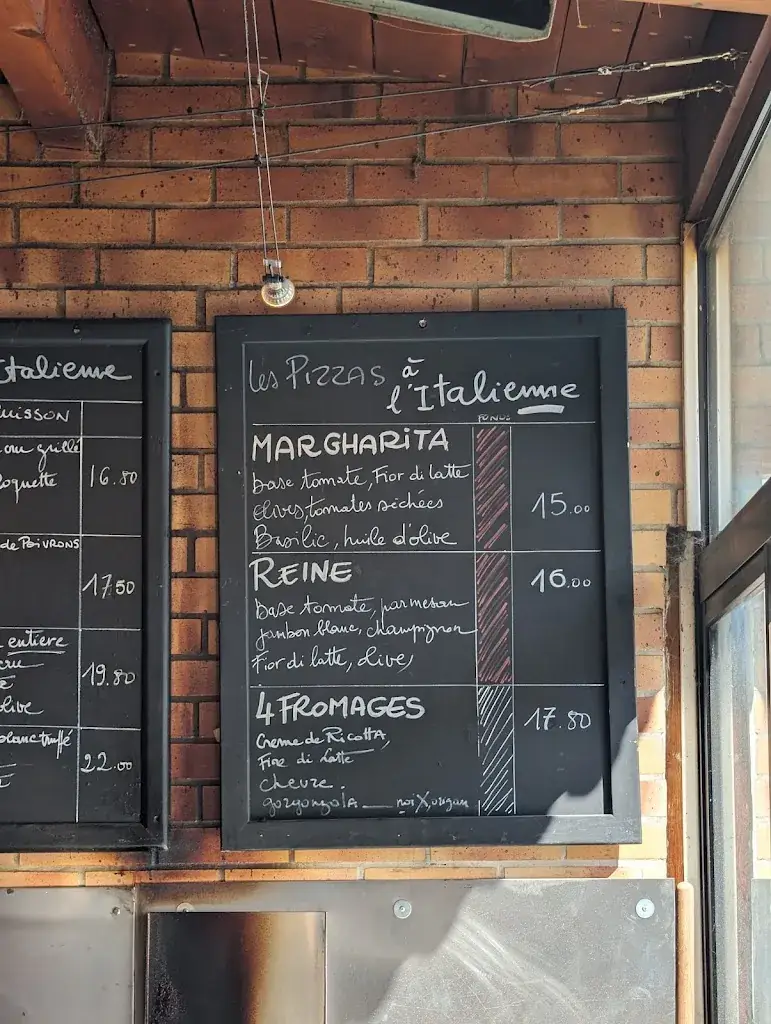 italienne
uisson
ou grillé
oquette
16.80
de POIVRONS
17.50
entière
cru
olive
19.80
blanc truffé
22.00
les PIZZAS à
l'Italienne
FONDS
MARGHARITA
base tomate, Fior di latte
olives, tomates séchées
Basilic, huile d'olive
15.00
REINE
base tomate, parmesan
jambon blanc, champignon
Fior di latte, olives
16.00
4 FROMAGES
Creme de RicottA,
Fior di Latte
chevre.
gorgonzolA noix, origan
17.80